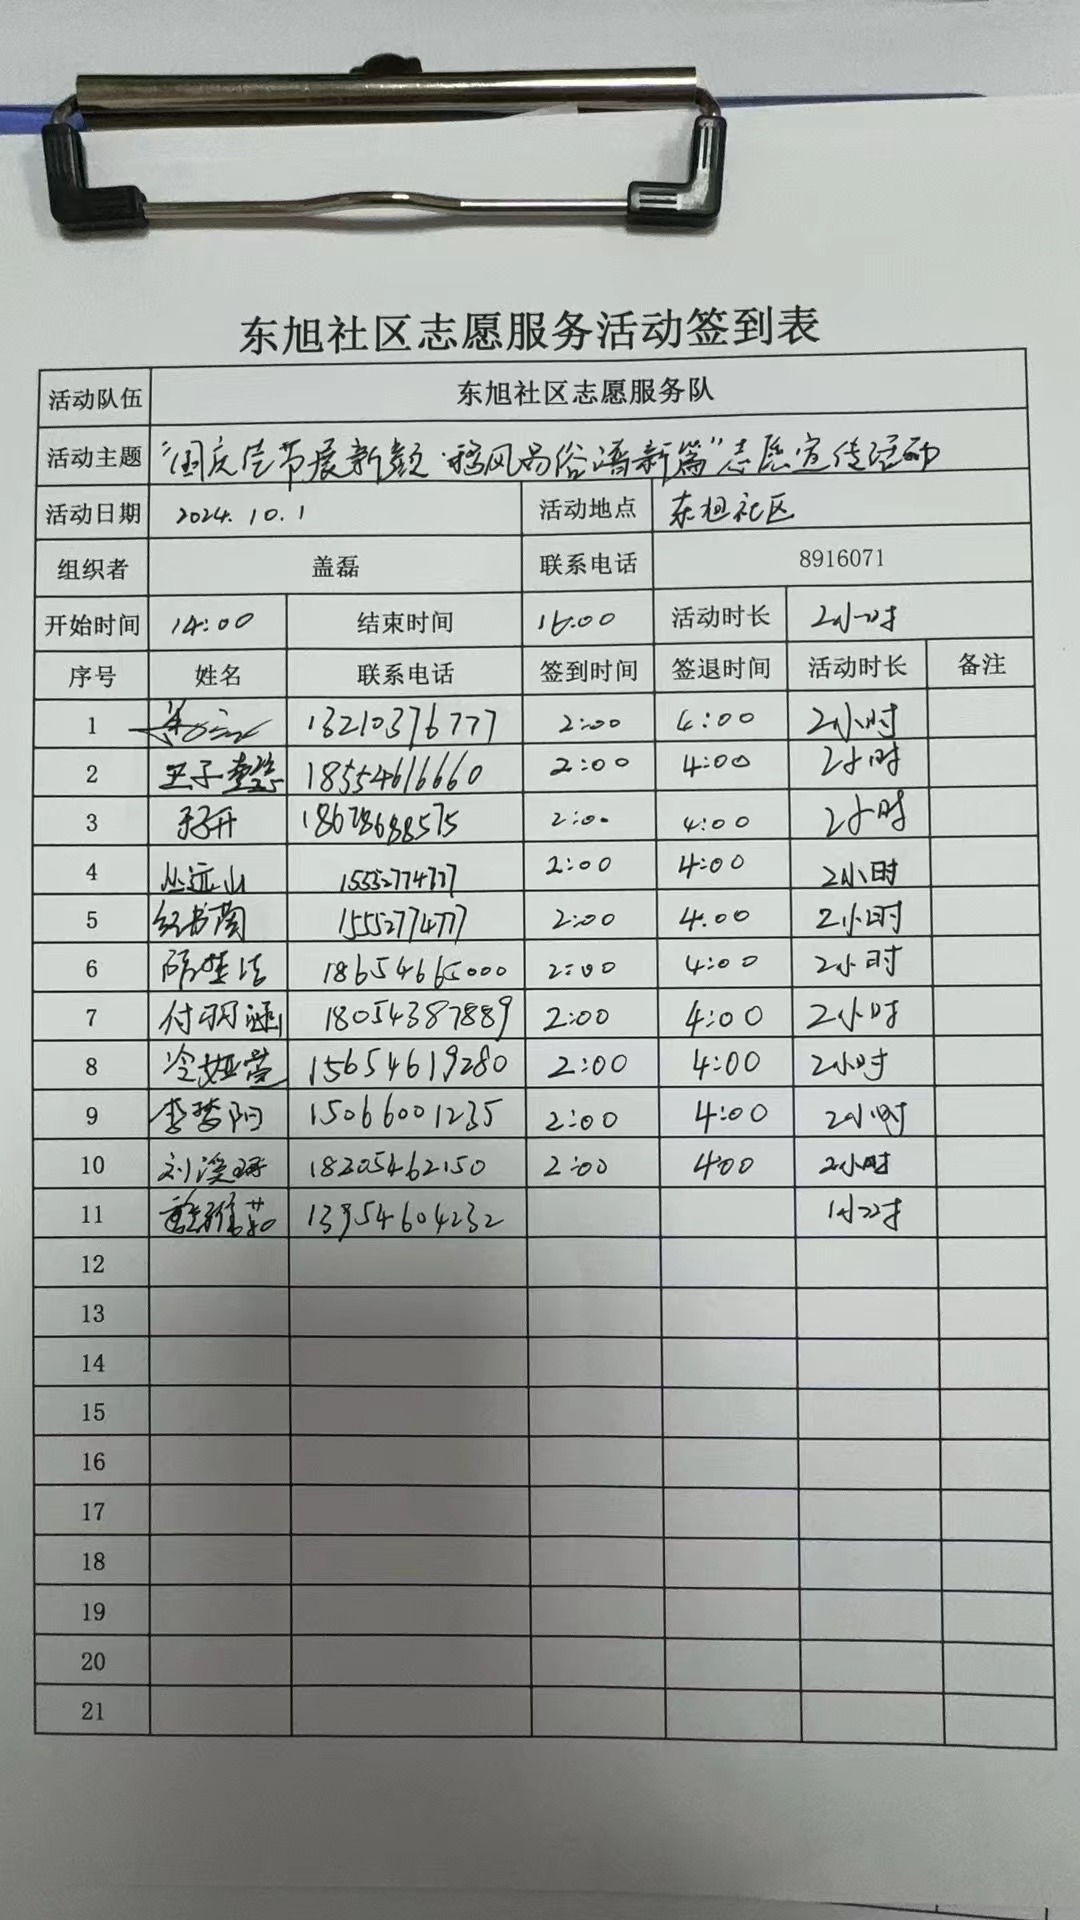 东旭社区志愿服务活动签到表
活动队伍 东旭社区志愿服务队
活动主题 “国庆佳节展新颜·移风易俗谱新篇”志愿宣传活动
活动日期 2024.10.1 活动地点 东旭社区
组织者 盖磊 联系电话 8916071
开始时间 14:00 结束时间 16:00 活动时长 2小时
序号 姓名 联系电话 签到时间 签退时间 活动时长 备注
1 13210376777 2:00 4:00 2小时
2 王子 18554616660 2:00 4:00 2小时
3 18678688575 2:00 4:00 2小时
4 丛远山 15552774777 2:00 4:00 2小时
5 纪书菌 15552774777 2:00 4.00 2小时
6 18654665000 2:00 4:00 2小时
7 付羽涵 18054387889 2:00 4:00 2小时
8 冷娅萱 15654619280 2:00 4:00 2小时
9 李梦阳 15066001235 2:00 4:00 2小时
10 刘溪 18205462150 2:00 4:00 2小时
11 13954604232 1小时
12
13
14
15
16
17
18
19
20
21